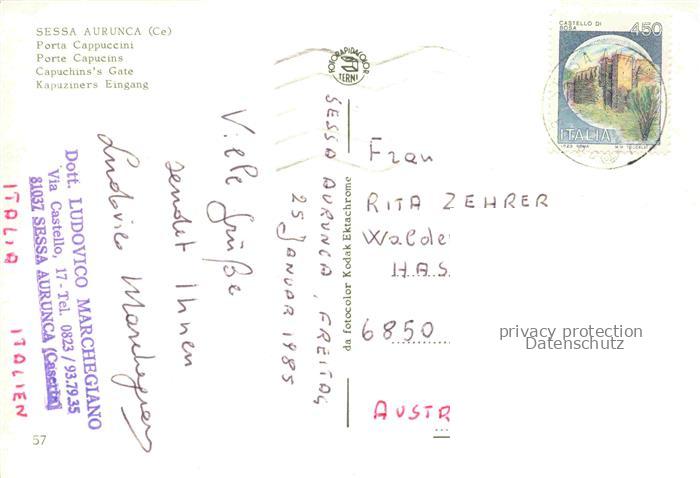 SESSA AURUNCA (Ce)
Porta Cappuccini
Porte Capucins
Capuchins's Gate
Kapuziners Eingang
FOTORAPIDACOLOR
TERNI
CASTELLO DI
ROSA
450
ITALIA
SESSA AURUNCA, FREITAG
25 JANUAR 1985
Viele Grüße
sendet Ihnen
Ludovico Marchegiano
Dott. LUDOVICO MARCHEGIANO
Via Castello, 17 - Tel. 0823 / 93.79.35
81037 SESSA AURUNCA (Caserta)
ITALIA ITALIEN
da fotocolor Kodak Ektachrome
Frau
RITA ZEHRER
Walde
HAS
6850
AUSTR
privacy protection
Datenschutz
57